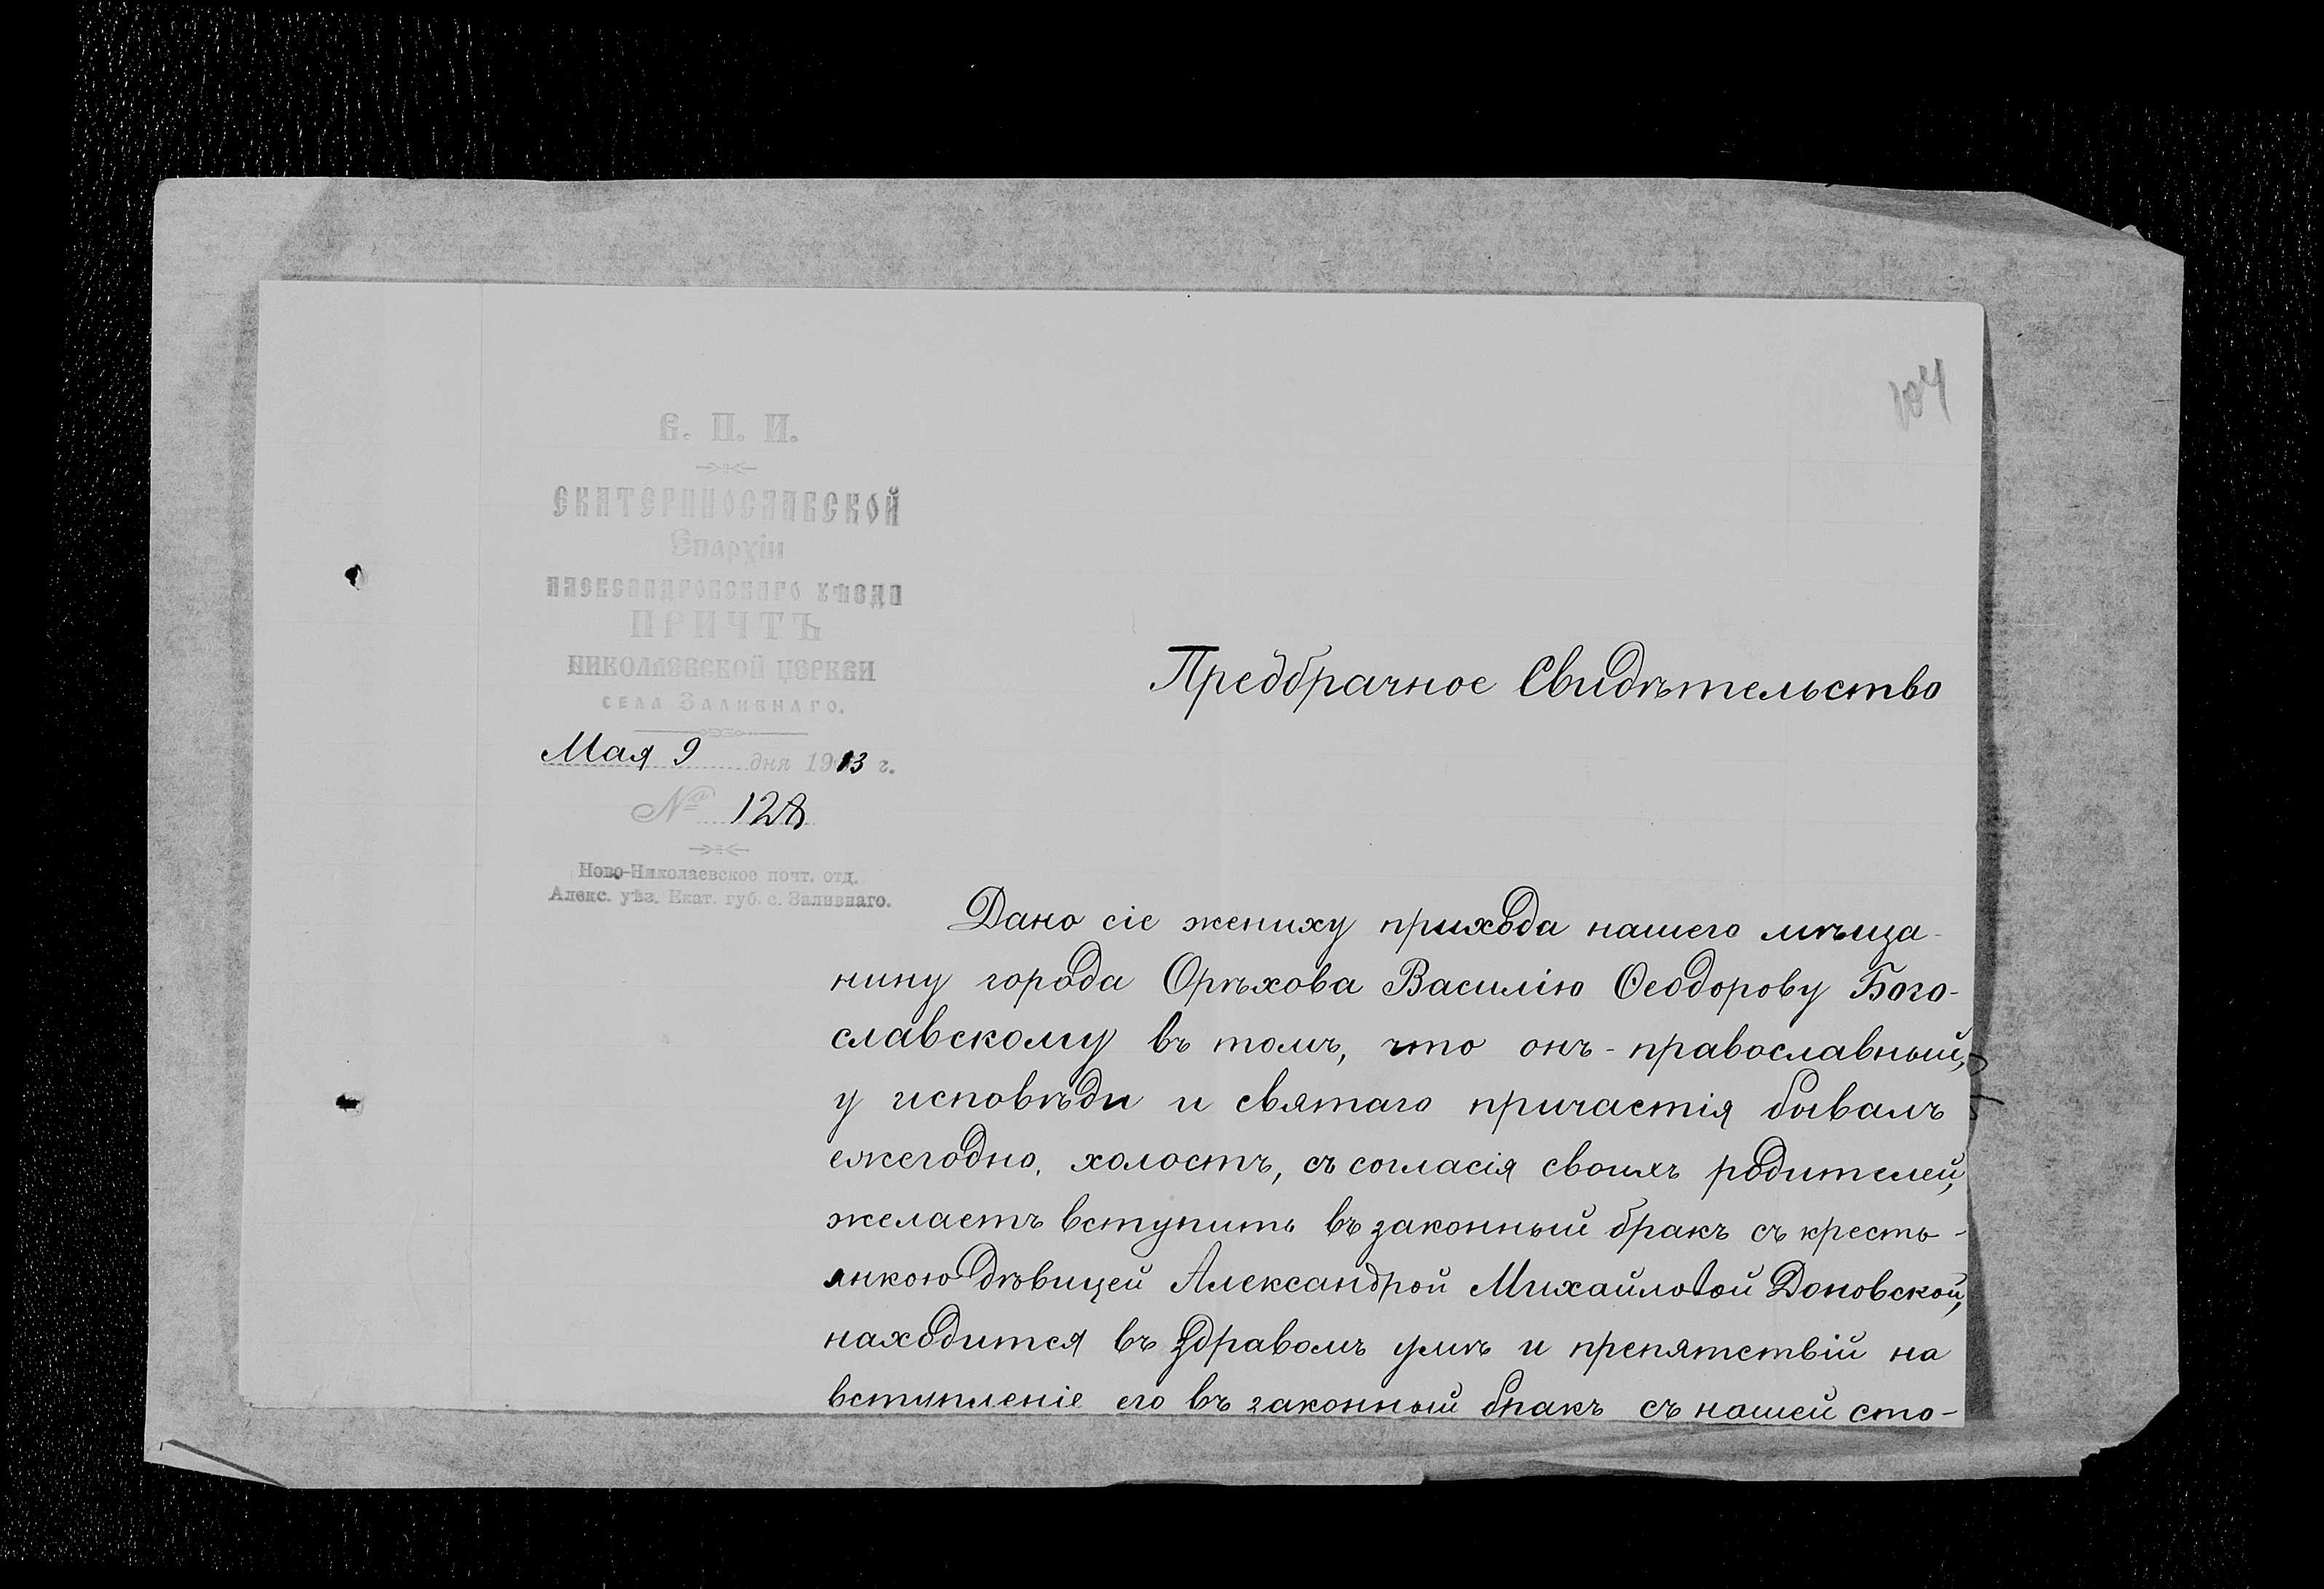 104
Є. П. И.
ЄКАТЕРИНОСЛАВСКОЙ
Єпархіи
АЛЕКСАНДРОВСКАГО УѢЗДА
ПРИЧТЪ
НИКОЛАЕВСКОЙ ЦЕРКВИ
СЕЛА ЗАЛИВНАГО.
Мая 9 дня 1913 г.
№ 128
Ново-Николаевское почт. отд.
Алекс. уѣз. Екат. губ. с. Заливнаго.
Предбрачное Свидѣтельство
Дано сіе жениху прихода нашего мѣща-
нину города Орѣхова Василію Ѳеодорову Бого-
славскому въ томъ, что онъ - православный,
у исповѣди и святаго причастія бывалъ
ежегодно, холостъ, съ согласія своихъ родителей,
желаетъ вступить въ законный бракъ съ кресть-
янкою дѣвицей Александрой Михайловой Доновской,
находится въ здравомъ умѣ и препятствій на
вступленіе его въ законный бракъ съ нашей сто-